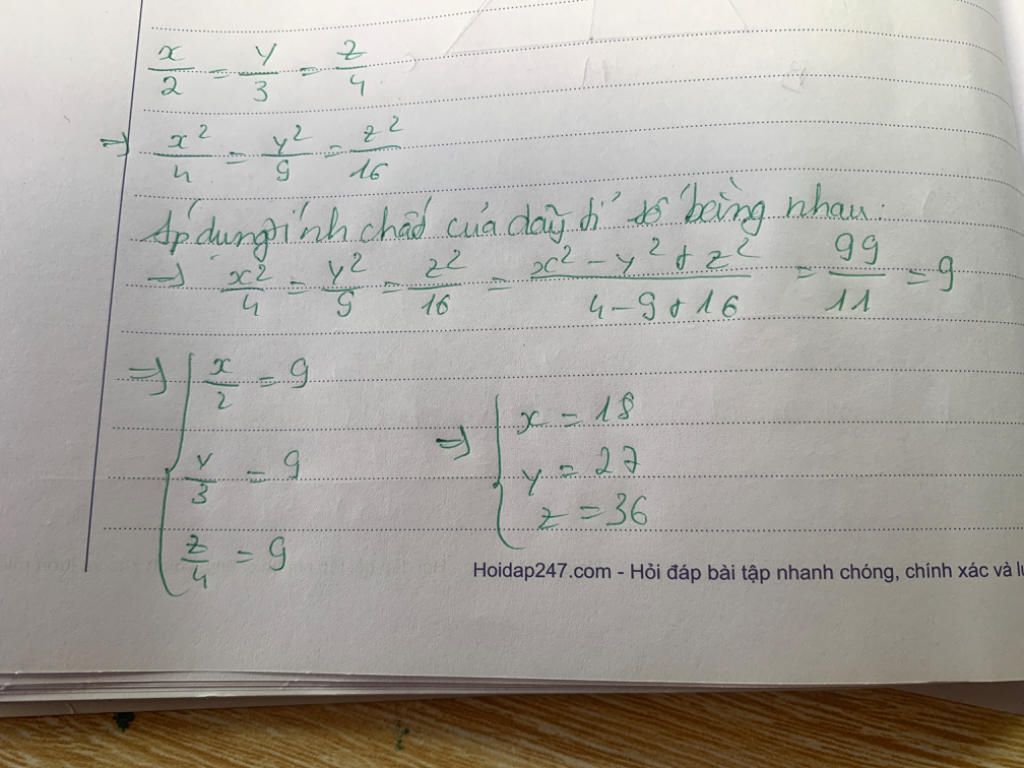 x/2 = y/3 = z/4
=> x²/4 = y²/9 = z²/16
Áp dụng tính chất của dãy tỉ số bằng nhau:
=> x²/4 = y²/9 = z²/16 = (x² - y² + z²)/(4 - 9 + 16) = 99/11 = 9
=> { x/2 = 9 => { x = 18
y/3 = 9 y = 27
z/4 = 9 z = 36
Hoidap247.com - Hỏi đáp bài tập nhanh chóng, chính xác và